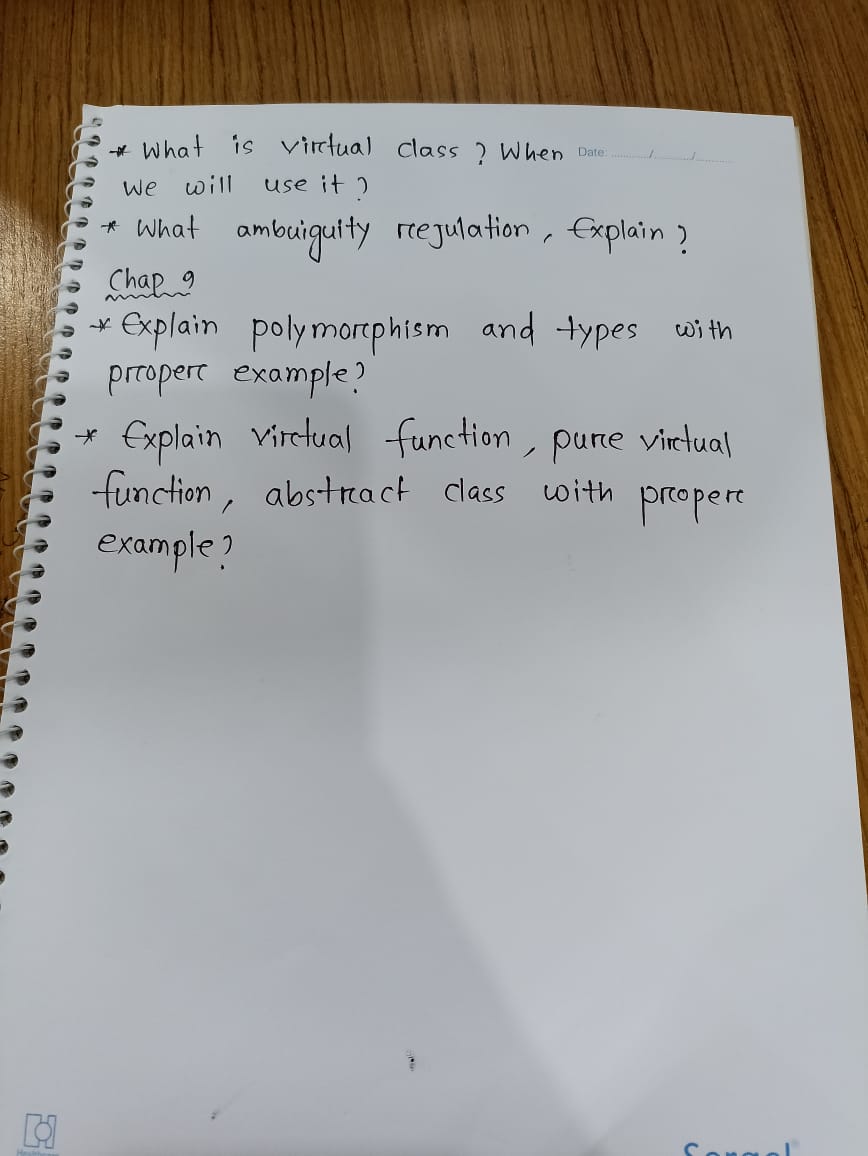 * What is virtual class ? When Date: ............/............/............
we will use it ?
* What ambuiguity regulation, Explain ?
Chap 9
* Explain polymorphism and types with
proper example?
* Explain virtual function, pure virtual
function, abstract class with proper
example?